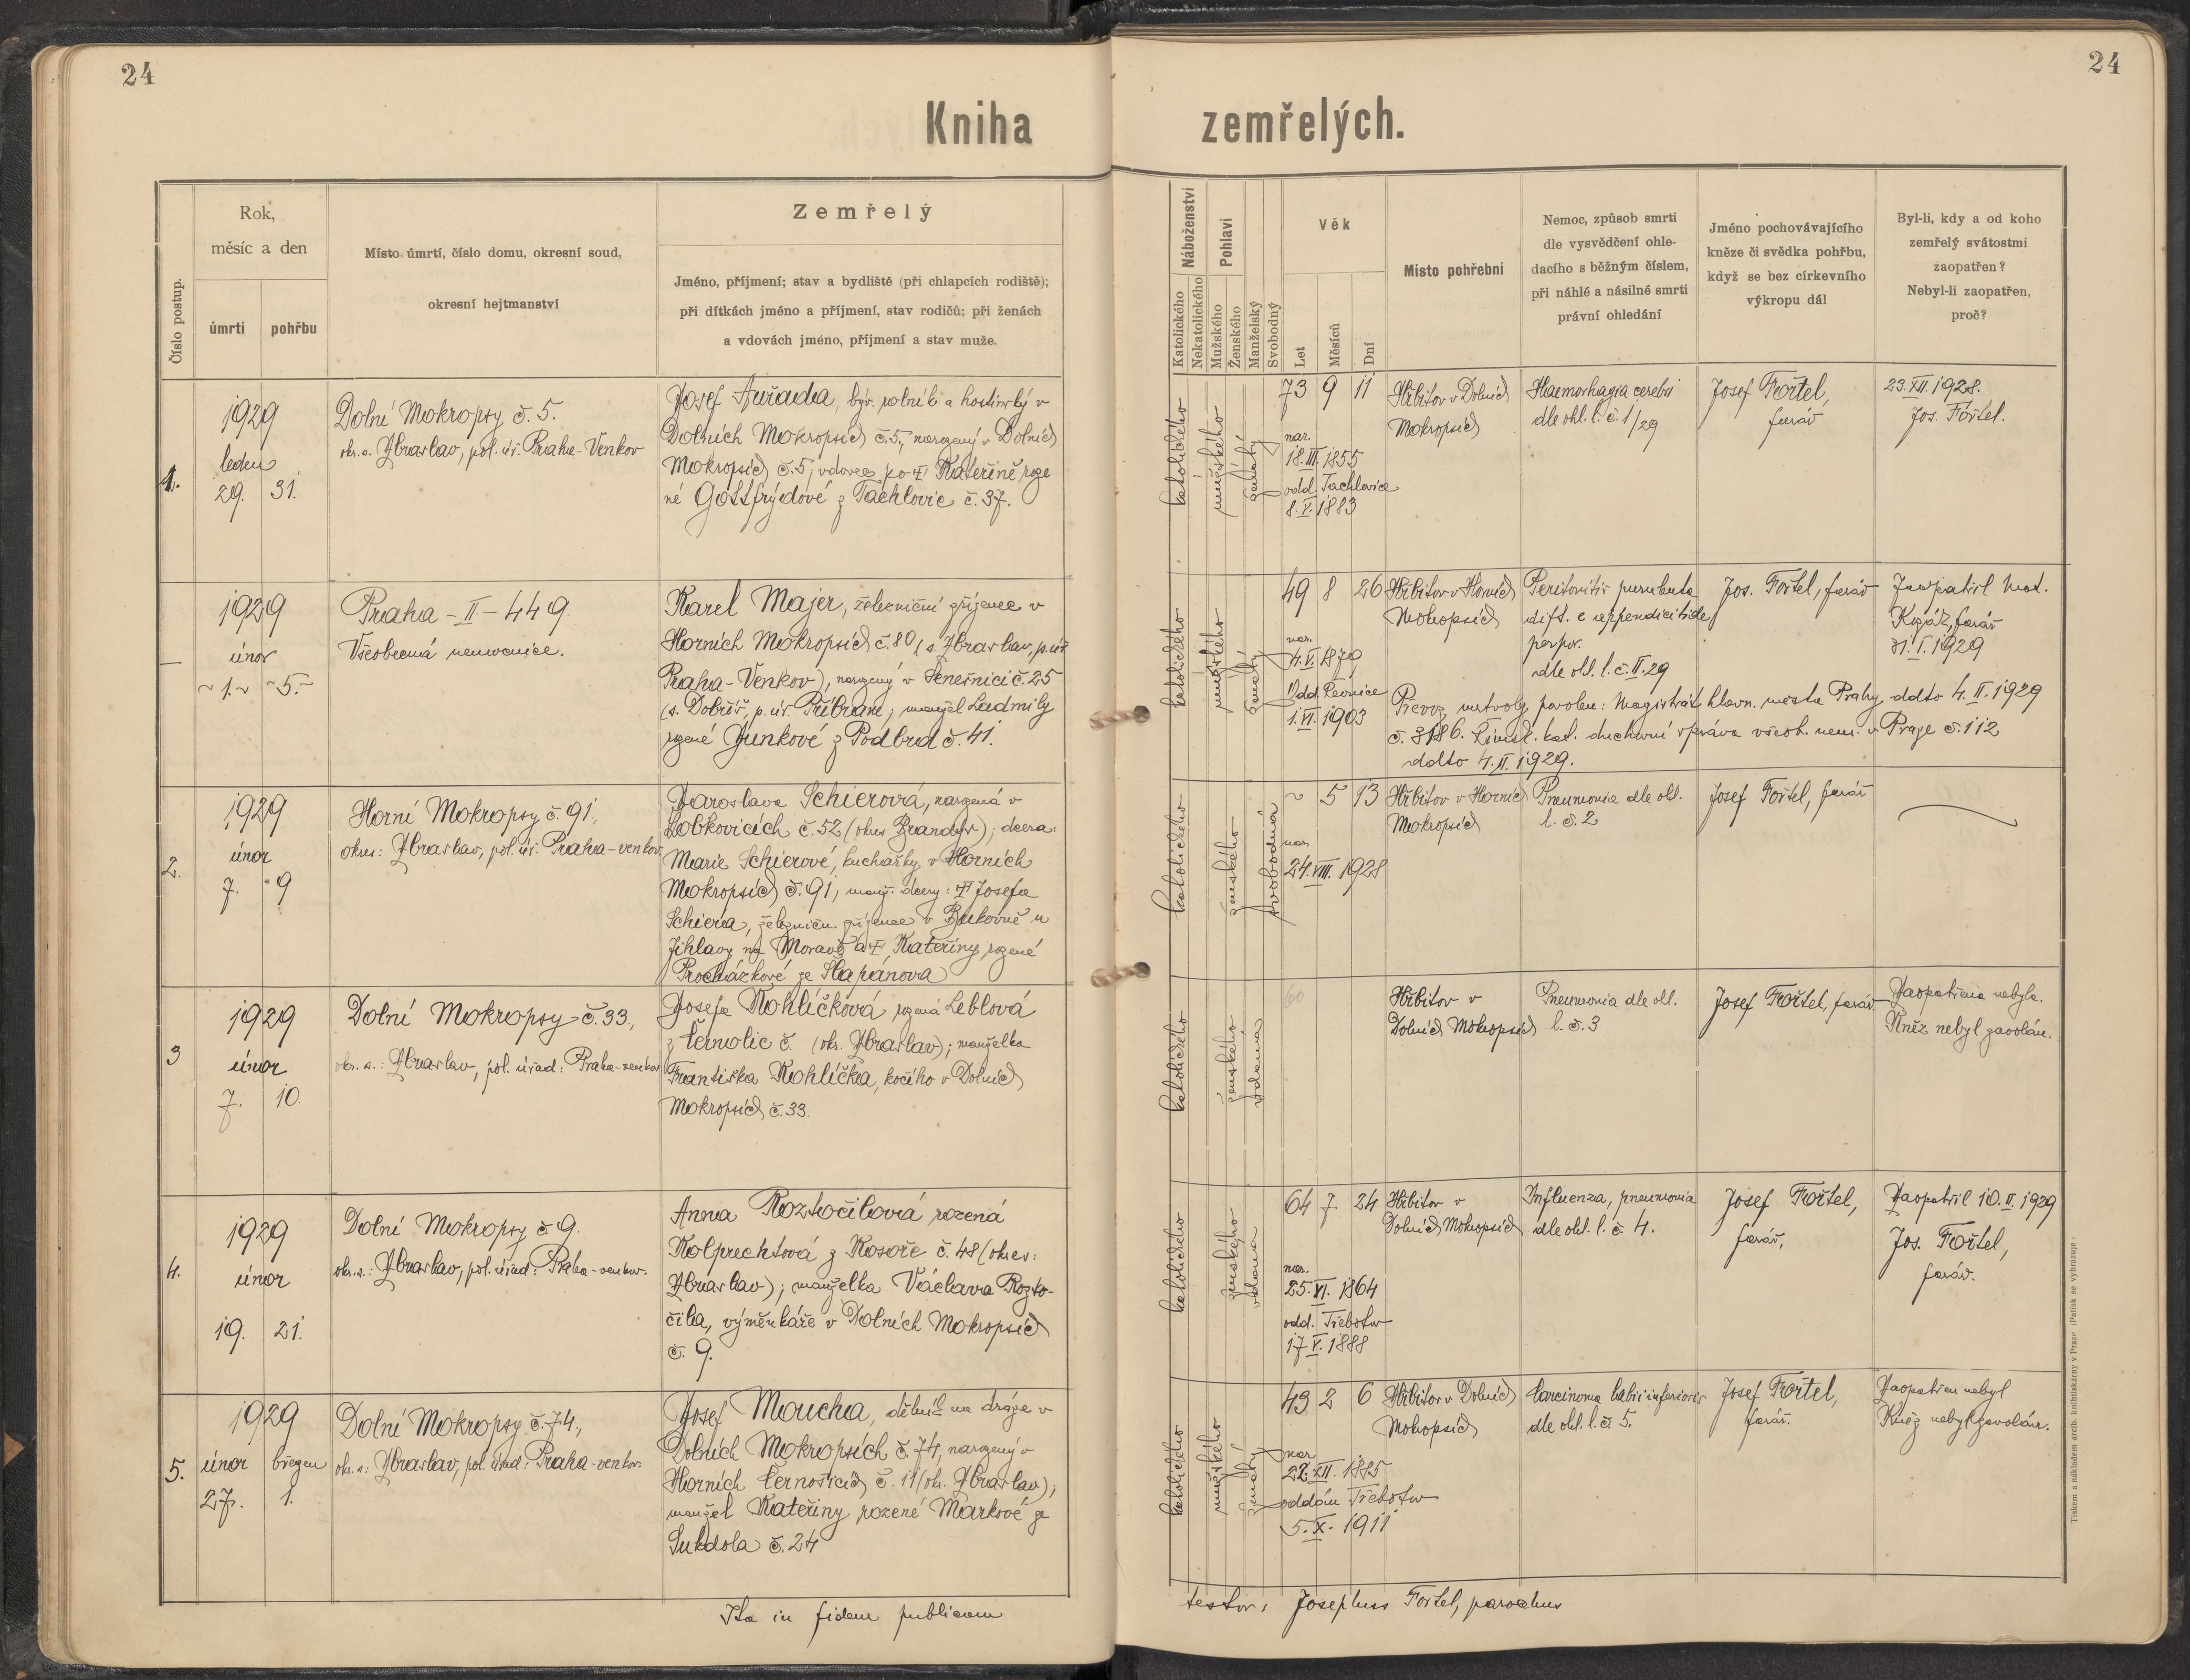 24
Kniha
Číslo postup.
Rok,
měsíc a den
úmrtí
pohřbu
Místo úmrtí, číslo domu, okresní soud,
okresní hejtmanství
Zemřelý
Jméno, příjmení; stav a bydliště (při chlapcích rodiště);
při dítkách jméno a příjmení, stav rodičů; při ženách
a vdovách jméno, příjmení a stav muže.
1.
1929
leden
29. 31.
Dolní Mokropsy č. 5.
okr. s. Zbraslav, pol. úř. Praha-Venkov
Josef Auřada, býv. rolník a hostinský v
Dolních Mokropsích č. 5, narozený v Dolních
Mokropsích č. 5; vdovec po Kateřině roze
né Gottfrýdové z Tachlovic č. 37.
—
1929
únor
1. 5.
Praha-II-449.
Všeobecná nemocnice.
Karel Majer, železniční zřízenec v
Horních Mokropsích č. 80 (s. Zbraslav, p. úř.
Praha-Venkov), narozený v Senešnici č. 25
(s. Dobříš, p. úř. Příbram; manžel Ludmily
rozené Junkové z Podbrd č. 41.
2.
1929
únor
7. 9
Horní Mokropsy č. 91,
okres: Zbraslav, pol. úř. Praha-venkov.
Jaroslava Schierová, narozená v
Lobkovicích č. 52 (okres Brandýs); dcera:
Marie Schierové, kuchařky v Horních
Mokropsích č. 91, manž. dcery: Josefa
Schiera, železničn. zřízence v Bukovně u
Jihlavy na Moravě a Kateřiny rozené
Procházkové ze Šlapánova
3
1929
únor
7. 10.
Dolní Mokropsy č. 33,
okr. s.: Zbraslav, pol. úřad: Praha-venkov
Josefa Kohlíčková rozená Leblová
z Černolic č. (okr. Zbraslav); manželka
Františka Kohlíčka, kočího v Dolních
Mokropsích č. 33.
4.
1929
únor
19. 21.
Dolní Mokropsy č 9.
okr. s.: Zbraslav, pol. úřad: Praha-venkov.
Anna Roztočilová rozená
Kolprechtová z Kosoře č. 48 (okres:
Zbraslav); manželka Václava Rozto-
čila, výměnkáře v Dolních Mokropsích
č. 9.
5.
1929
únor březen
27. 1.
Dolní Mokropsy č. 74,
okr. s: Zbraslav, pol. úřad: Praha-venkov.
Josef Moucha, dělník na dráze v
Dolních Mokropsích č. 74, narozený v
Horních Černošicích č. 11 (okr. Zbraslav);
manžel Kateřiny rozené Markové ze
Sukdola č. 24
Ita in fidem publicam
24
zemřelých.
Náboženství
Katolického
Nekatolického
Pohlaví
Mužského
Ženského
Manželský
Svobodný
Věk
Let
Měsíců
Dní
Místo pohřební
Nemoc, způsob smrti
dle vysvědčení ohle-
dacího s běžným číslem,
při náhlé a násilné smrti
právní ohledání
Jméno pochovávajícího
kněze či svědka pohřbu,
když se bez církevního
výkropu dál
Byl-li, kdy a od koho
zemřelý svátostmi
zaopatřen?
Nebyl-li zaopatřen,
proč?
katolického
mužského
ženatý
73 9 11
nar.
18. III. 1855
odd. Tachlovice
8. V. 1883
Hřbitov v Dolních
Mokropsích
Haemorhagia cerebri
dle ohl. l. č. 1/29
Josef Fořtel,
farář
23. XII. 1928.
Jos. Fořtel.
katolického
mužského
ženatý
49 8 26
nar.
4. V. 1879
Odd. Řevnice
1. VI. 1903
Hřbitov v Horních
Mokropsích
Peritonitis purulenta
dift. e appendicitide
perfor.
dle ohl. l. č. II. 29
Jos. Fořtel, farář
Zaopatřil Mat.
farář
31. I. 1929
Převoz mrtvoly povolen: Magistrát hlavn. města Prahy ddto 4. II. 1929
č. 3186. Římsk. kat. duchovní správa všeob. nem. v Praze č. 112
ddto 4. II. 1929.
katolického
ženského
svobodná
~ 5 13
nar.
24. VIII. 1928
Hřbitov v Horních
Mokropsích
Pneumonia dle ohl.
l. č. 2
Josef Fořtel, farář
katolického
ženského
vdaná
60
Hřbitov v
Dolních Mokropsích
Pneumonia dle ohl.
l. č. 3
Josef Fořtel, farář
Zaopatřena nebyla.
Kněz nebyl zavolán.
katolického
ženského
vdaná
64 7 24
nar.
25. VI. 1864
odd. Třebotov
17. V. 1888
Hřbitov v
Dolních Mokropsích
Influenza, pneumonia
dle ohl. l. č. 4.
Josef Fořtel,
farář,
Zaopatřil 10. II. 1929
Jos. Fořtel,
farář.
katolického
mužského
ženatý
43 2 6
nar
22. XII. 1885
oddán Třebotov
5. X. 1911
Hřbitov v Dolních
Mokropsích
Carcinoma labii inferioris
dle ohl. l. č 5.
Josef Fořtel,
farář.
Zaopatřen nebyl
Kněz nebyl zavolán.
testor: Josephus Fořtel, parochus
Tiskem a nákladem arcib. knihtiskárny v Praze. (Patisk se vyhrazuje.)